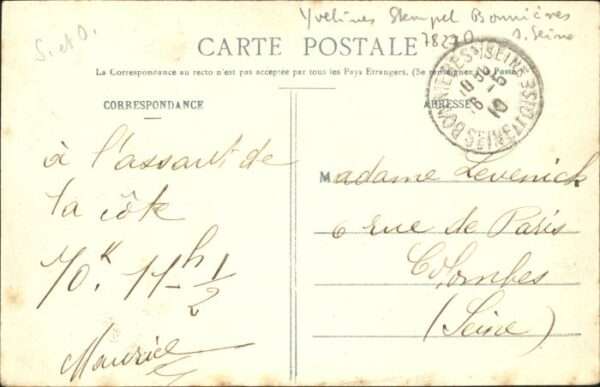 Yvelines Stempel Bonnières
S. et O.
78270
s. Seine
CARTE POSTALE
La Correspondance au recto n'est pas acceptée par tous les Pays Etrangers. (Se renseigner à la Poste)
CORRESPONDANCE
ADRESSE
BONNIERES S/ SEINE
SEINE-ET-OISE
à l'assaut de
la côte
70. K 11 h 1/2
Maurice
Madame Levenick
6 rue de Paris
Colombes
(Seine)